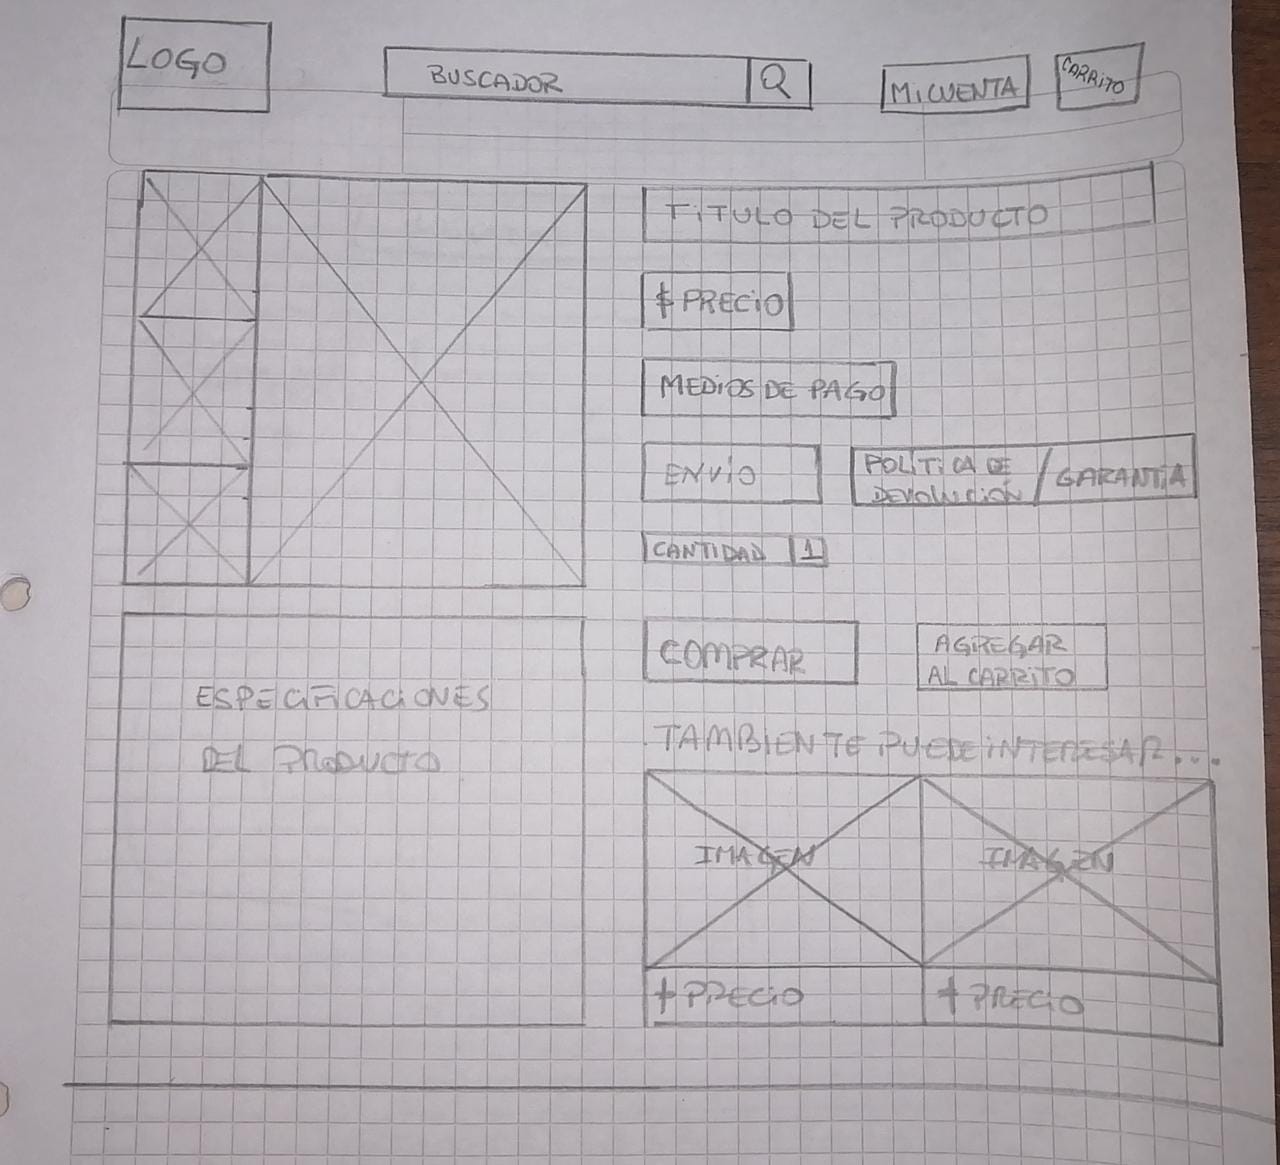 LOGO
BUSCADOR
MI CUENTA
CARRITO
TITULO DEL PRODUCTO
$ PRECIO
MEDIOS DE PAGO
ENVIO
POLITICA DE
DEVOLUCIÓN / GARANTIA
CANTIDAD 1
COMPRAR
AGREGAR
AL CARRITO
ESPECIFICACIONES
DEL PRODUCTO
TAMBIEN TE PUEDE INTERESAR...
IMAGEN
IMAGEN
$ PRECIO
$ PRECIO